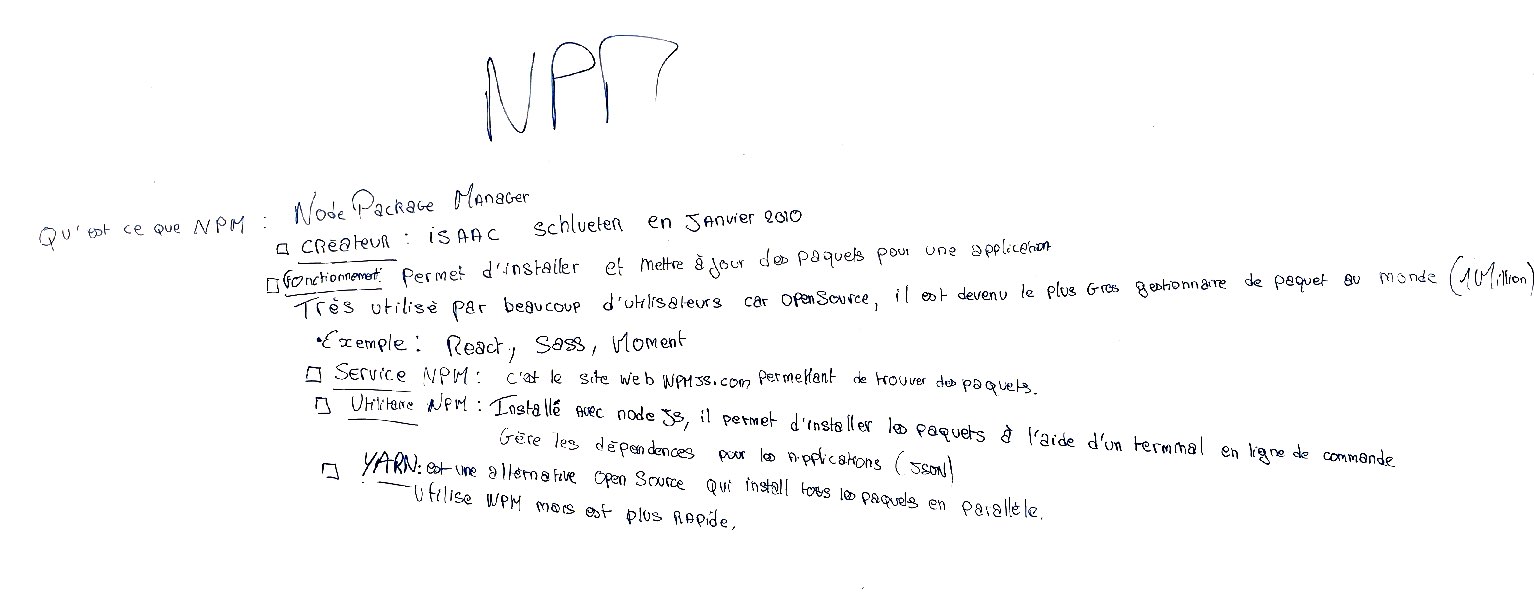 NPM
Qu'est ce que NPM : Node Package Manager
créateur : isAAC schlueter en Janvier 2010
fonctionnement : Permet d'installer et mettre à jour des paquets pour une application
Très utilisé par beaucoup d'utilisateurs car openSource, il est devenu le plus Gros gestionnaire de paquet au monde (1 Million)
•Exemple : React, Sass, Moment
Service NPM : c'est le site web NPMJS.com permettant de trouver des paquets.
Utilitaire NPM : Installé avec node JS, il permet d'installer les paquets à l'aide d'un terminal en ligne de commande
Gère les dépendences pour les applications (JSON)
YARN : est une alternative Open Source qui install tous les paquets en parallèle.
Utilise NPM mais est plus Rapide.